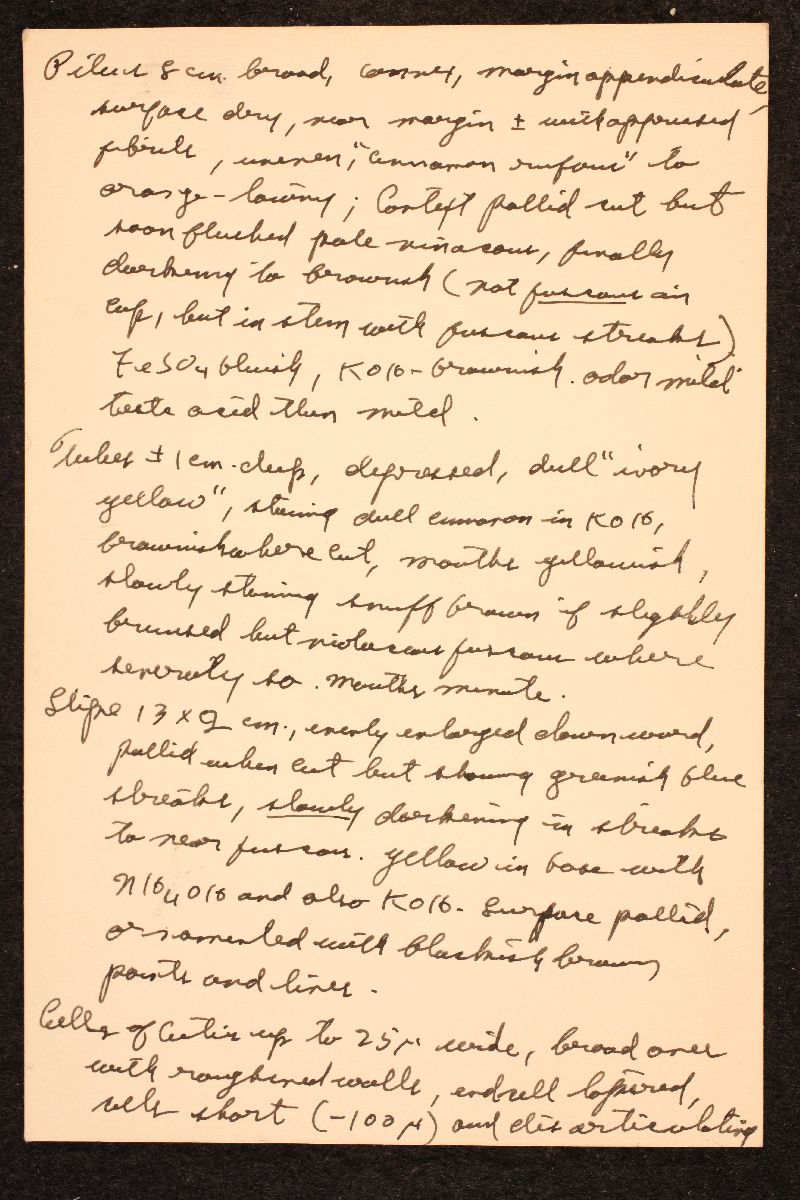 Pileus 8 cm. broad, convex, margin appendiculate,
surface dry, near margin ± with appressed
fibrils, uneven, "cinnamon rufous" to
orange-tawny; Context pallid cut but
soon flushed pale vinaceous, finally
darkening to brownish (not fuscous in
cap, but in stem with fuscous streaks)
FeSO4 bluish, KOH- brownish. odor mild
taste acid then mild.
Tubes ± 1 cm. deep, depressed, dull "ivory
yellow", staining dull cinnamon in KOH,
brownish where cut, mouths yellowish,
slowly staining snuff brown if slightly
bruised but violaceous fuscous where
severely so. Mouths minute.
Stipe 13 x 2 cm., evenly enlarged downward,
pallid when cut but showing greenish blue
streaks, slowly darkening in streaks
to near fuscous. yellow in base with
NH4OH and also KOH. Surface pallid,
ornamented with blackish brown
points and lines.
Cells of cutis up to 25µ wide, broad ones
with roughened walls, endcell tapered,
cells short (-100 µ) and disarticulating